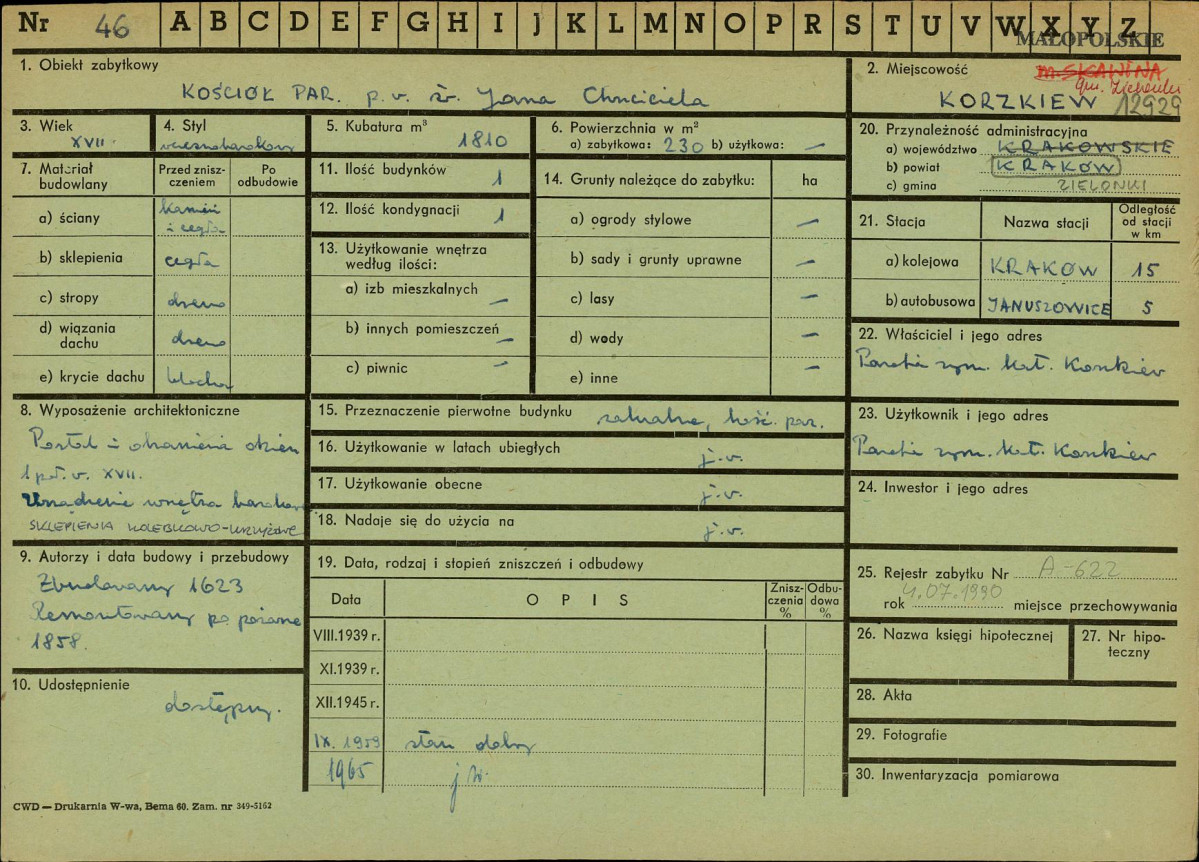 Nr 46 A B C D E F G H I J K L M N O P R S T U V W X Y Z
MAŁOPOLSKIE
1. Obiekt zabytkowy
KOŚCIÓŁ PAR. p.w. św. Jana Chrzciciela
2. Miejscowość
m. SKAWINA
gm. Zielonki
KORZKIEW 12929
3. Wiek
XVII.
4. Styl
wczesnobarokowy
5. Kubatura m³
1810
6. Powierzchnia w m²
a) zabytkowa: 230 b) użytkowa: —
7. Materiał budowlany
Przed zniszczeniem
Po odbudowie
a) ściany kamień i cegła
b) sklepienia cegła
c) stropy drewno
d) wiązania dachu drewno
e) krycie dachu blacha
8. Wyposażenie architektoniczne
Portal i obramienia okien
1 poł. w. XVII.
Urządzenie wnętrza barokowe
SKLEPIENIA KOLEBKOWO-KRZYŻOWE
9. Autorzy i data budowy i przebudowy
Zbudowany 1623
Remontowany po pożarze
1858.
10. Udostępnienie
dostępny.
11. Ilość budynków 1
12. Ilość kondygnacji 1
13. Użytkowanie wnętrza według ilości:
a) izb mieszkalnych —
b) innych pomieszczeń —
c) piwnic —
14. Grunty należące do zabytku: ha
a) ogrody stylowe —
b) sady i grunty uprawne —
c) lasy —
d) wody —
e) inne —
15. Przeznaczenie pierwotne budynku sakralne, kość. par.
16. Użytkowanie w latach ubiegłych j.w.
17. Użytkowanie obecne j.w.
18. Nadaje się do użycia na j.w.
19. Data, rodzaj i stopień zniszczeń i odbudowy
Data
O P I S
Zniszczenia %
Odbudowa %
VIII.1939 r.
XI.1939 r.
XII.1945 r.
IX. 1959 stan dobry
1965 j w.
20. Przynależność administracyjna
a) województwo KRAKOWSKIE
b) powiat KRAKÓW
c) gmina ZIELONKI
21. Stacja
Nazwa stacji
Odległość od stacji w km
a) kolejowa KRAKÓW 15
b) autobusowa JANUSZOWICE 5
22. Właściciel i jego adres
Parafia rzym. kat. Korzkiew
23. Użytkownik i jego adres
Parafia rzym. kat. Korzkiew
24. Inwestor i jego adres
25. Rejestr zabytku Nr A-622
rok 4.07.1990 miejsce przechowywania
26. Nazwa księgi hipotecznej
27. Nr hipoteczny
28. Akta
29. Fotografie
30. Inwentaryzacja pomiarowa
CWD — Drukarnia W-wa, Bema 60. Zam. nr 349-5162